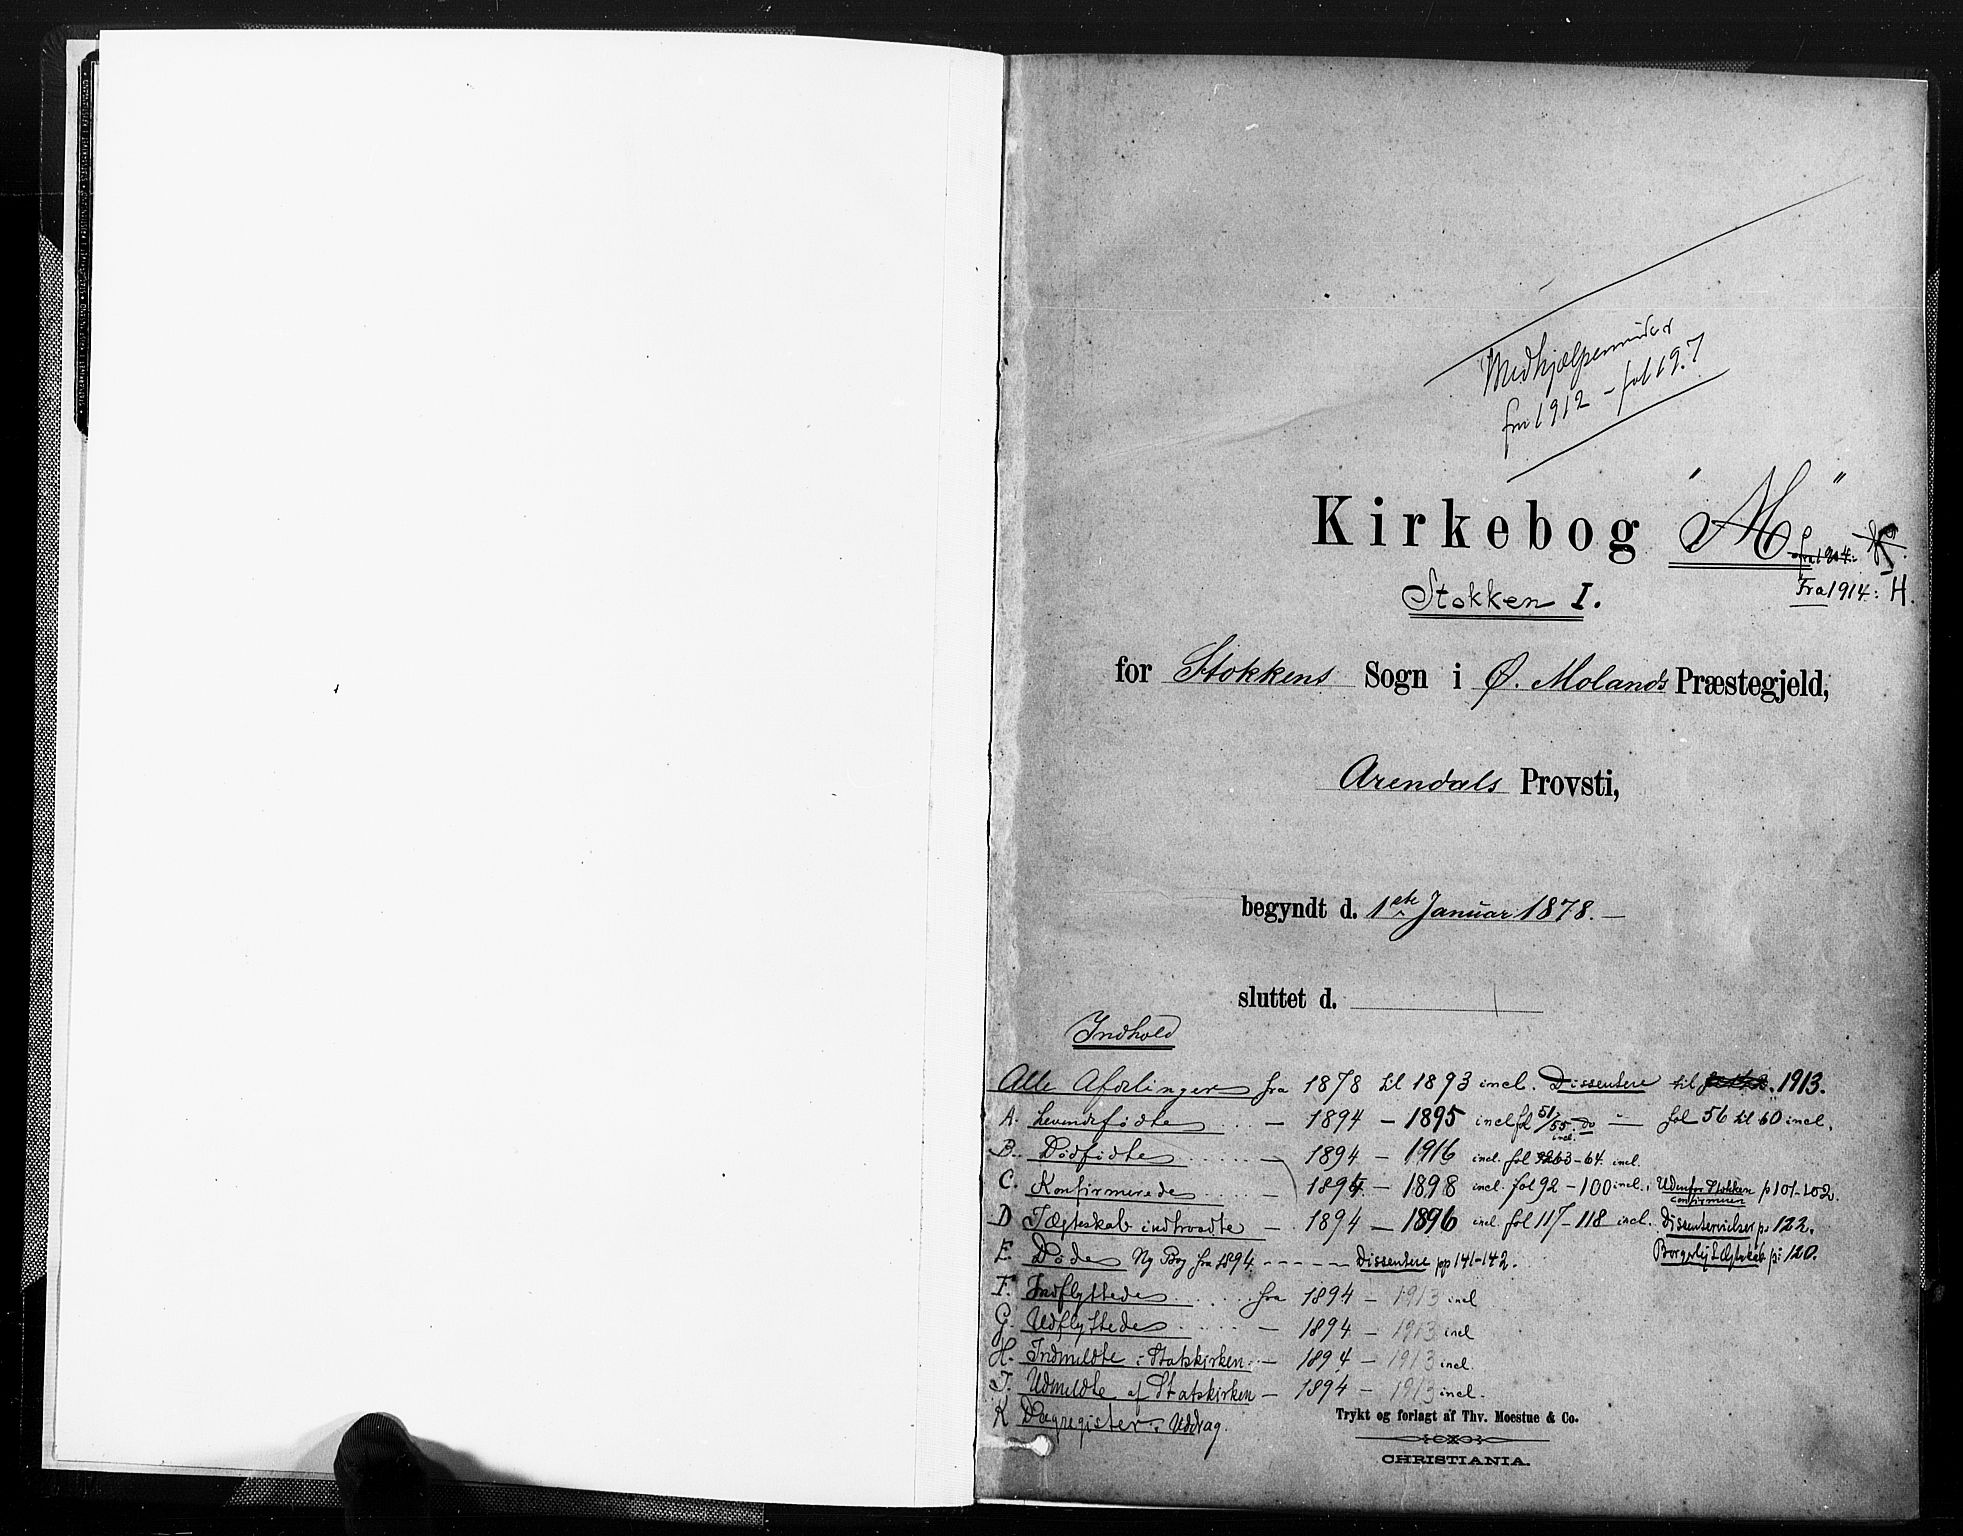 Medhjælpemidler
fra 1912 - fol 197
Kirkebog "M"
fra 1904:
Stokken I.
Fra 1914: H.
for Stokkens Sogn i Ø. Molands Præstegjeld,
Arendals Provsti,
begyndt d. 1ste Januar 1878. —
sluttet d.
Indhold
Alle Afdelinger fra 1878 til 1893 incl. Dissentere til 1913.
A. Levendefødte ... — 1894 — 1895 incl fol 51/55 incl. do — fol 56 til 60 incl.
B. Dødfødte ...... — 1894 — 1916 incl. fol 63-64. incl.
C. Konfirmerede ..... — 1894 — 1898 incl. fol 92-100 incl., Udenfor Stokken confirmeret p 101-102.
D Ægteskab indtraadte — 1894 — 1896 incl fol 117-118 incl. Dissentervielser p: 122.
E. Døde Ny Bog fra 1894. - - - - — Dissentere pp 141-142. Borgerlig Ægteskab p: 120.
F. Indflyttede ...... fra 1894 — 1913 incl
G. Udflyttede ..... — 1894 — 1913 incl
H. Indmeldte i Statskirken. — 1894 — 1913 incl.
I. Udmeldte af Statskirken — 1894 — 1913 incl.
K Dagregister. Uddrag.
Trykt og forlagt af Thv. Moestue & Co.
CHRISTIANIA.